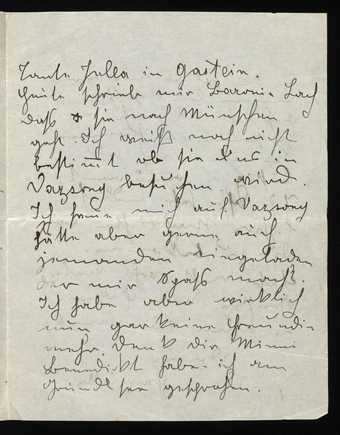 Tante Jella in Gastein.
Heute schrieb mir Baronin Bach
dass sie nach München
geht. Ich weiß noch nicht
bestimmt ob sie uns in
Vazsony besuchen wird.
Ich freue mich auf Vazsony
hätte aber gerne auch
jemanden eingeladen
der mir Spass macht.
Ich habe aber wirklich
nun gar keine Freundin
mehr. Denk dir Mimi
Benedikt habe ich am
Grundlsee gesprochen.